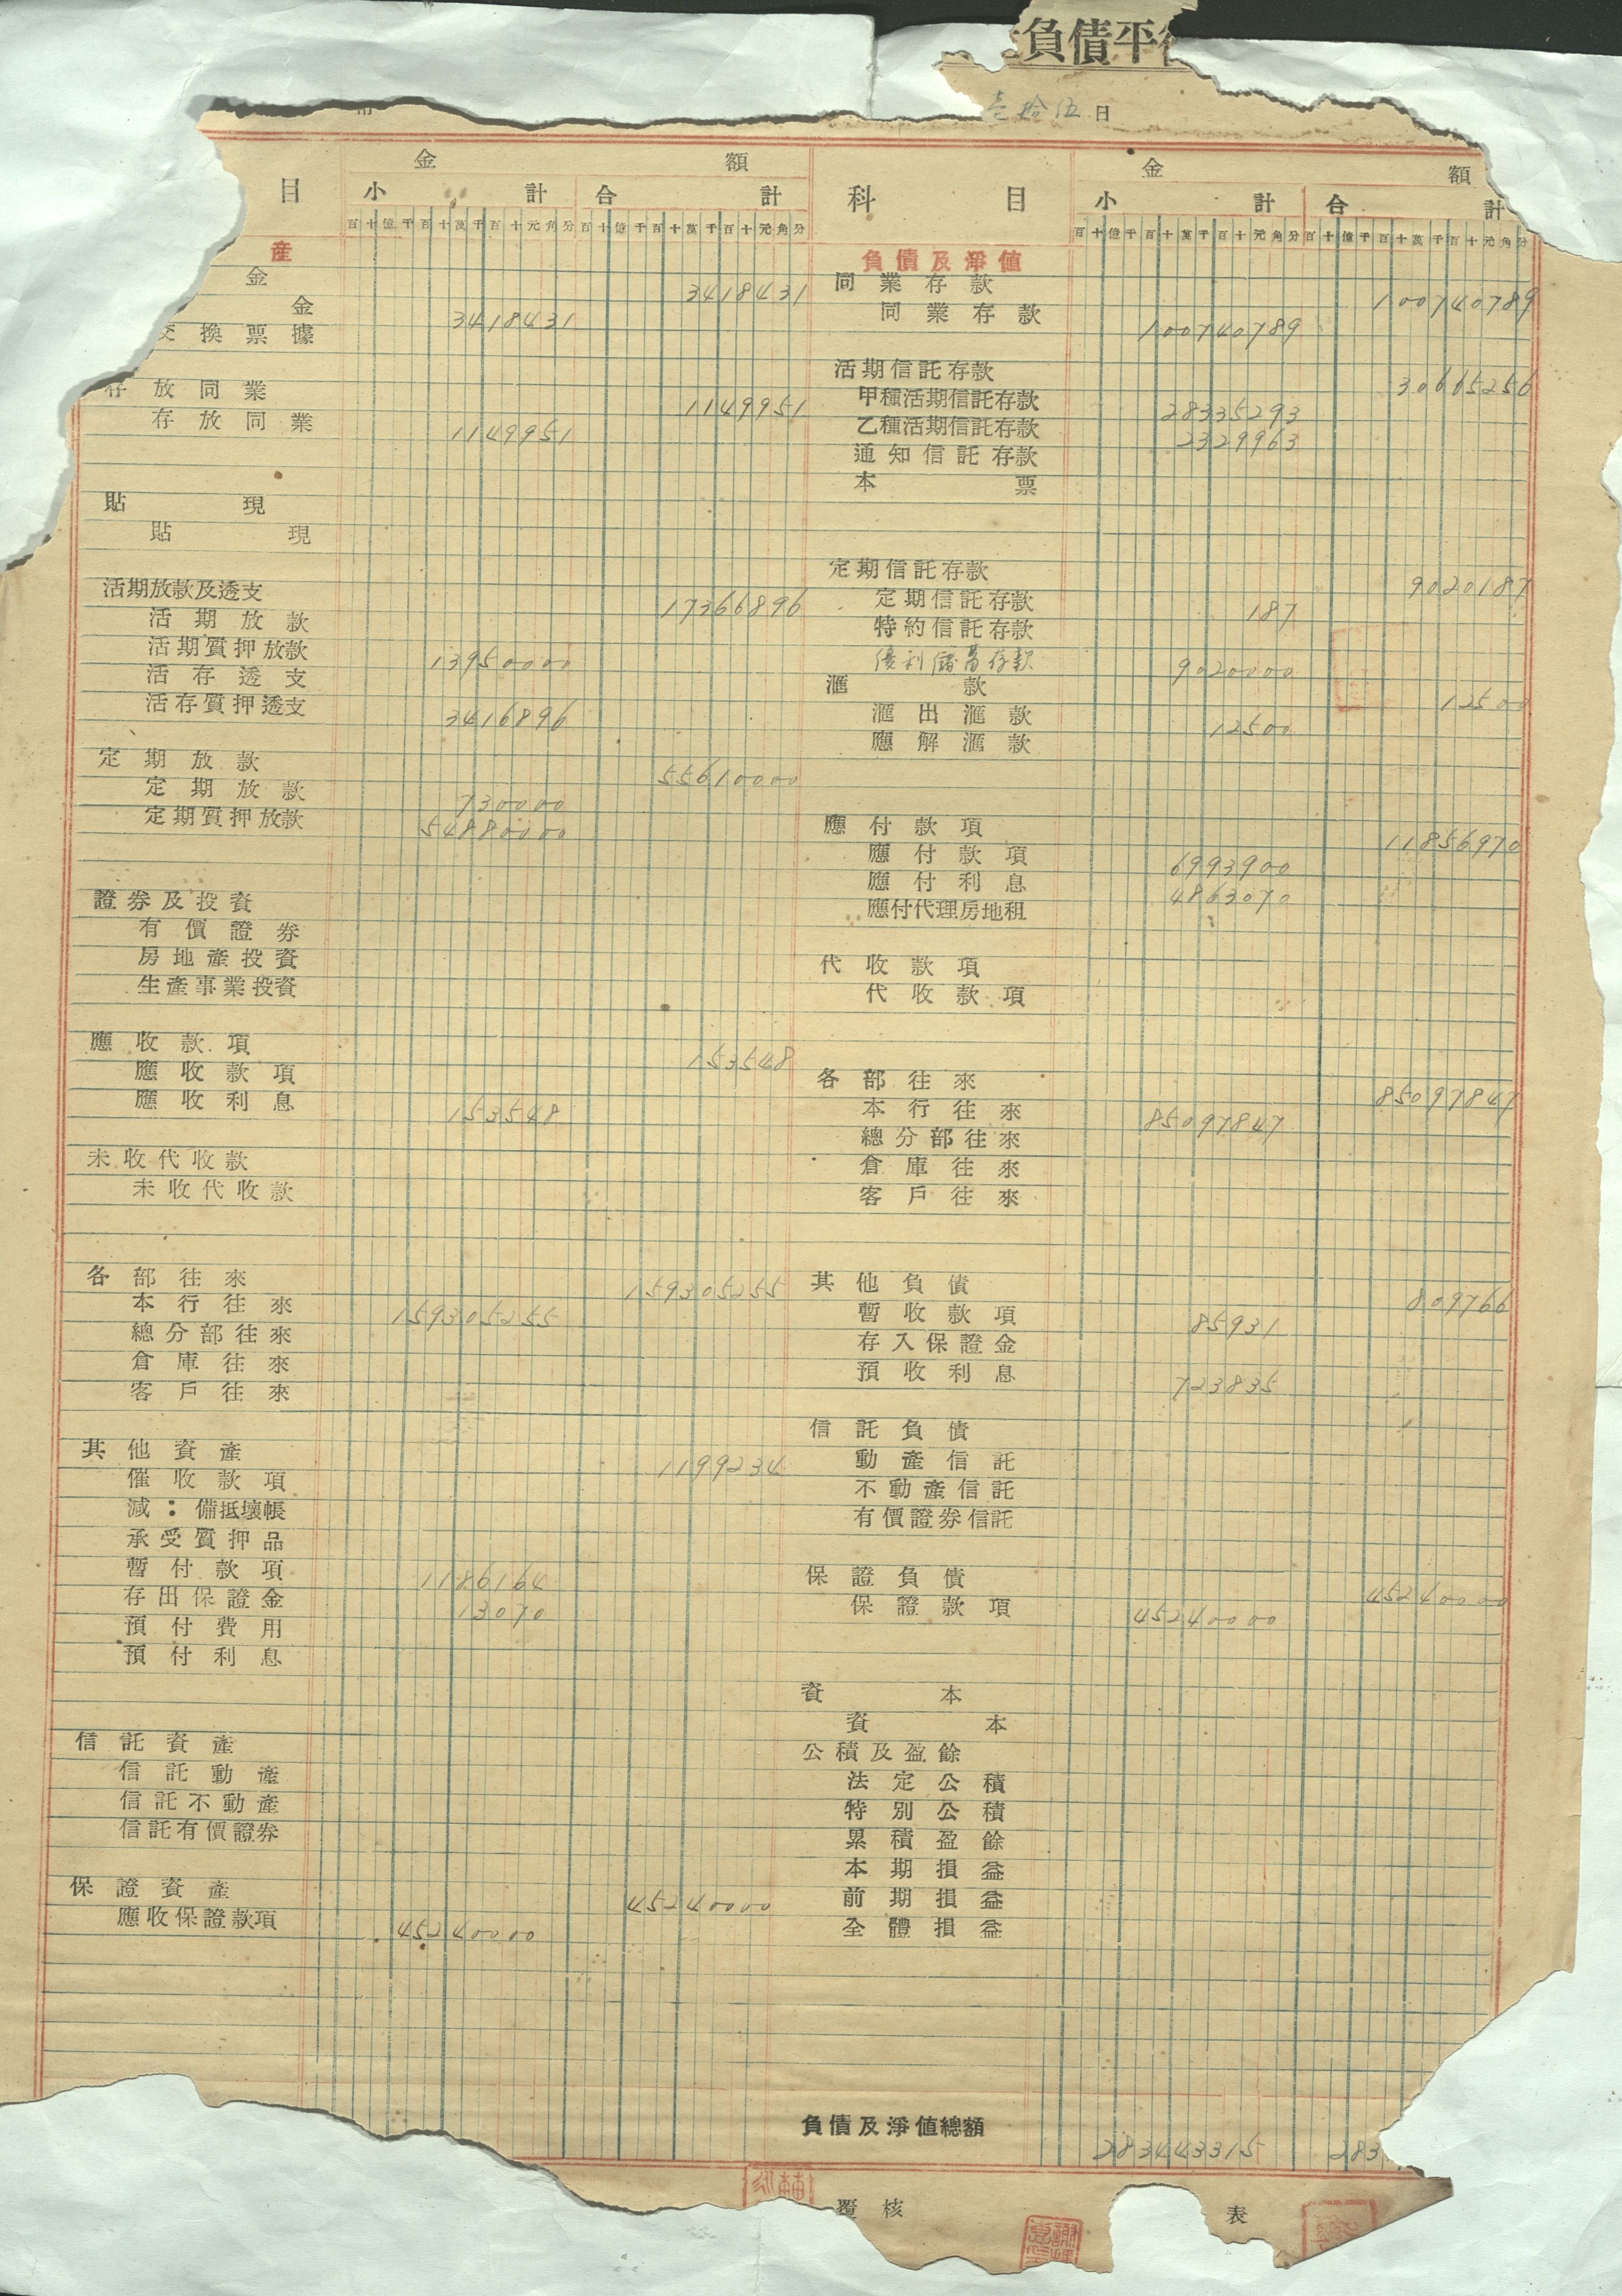 負債平
壹拾伍日
目 金額
小計 合計
百十億千百十萬千百十元角分 百十億千百十萬千百十元角分
產
金 3418431
金 3418431
交換票據
存放同業 1149951
存放同業 1149951
貼現
貼現
活期放款及透支 17366896
活期放款
活期質押放款 13950000
活存透支
活存質押透支 3416896
定期放款 55610000
定期放款 730000
定期質押放款 54880000
證券及投資
有價證券
房地產投資
生產事業投資
應收款項 153548
應收款項
應收利息 153548
未收代收款
未收代收款
各部往來 159305255
本行往來 159305255
總分部往來
倉庫往來
客戶往來
其他資產 1199234
催收款項
減：備抵壞帳
承受質押品
暫付款項 1186164
存出保證金 13070
預付費用
預付利息
信託資產
信託動產
信託不動產
信託有價證券
保證資產 45240000
應收保證款項 45240000
科目 金額
小計 合計
百十億千百十萬千百十元角分 百十億千百十萬千百十元角分
負債及淨值
同業存款 100740789
同業存款 100740789
活期信託存款 30665256
甲種活期信託存款 28335293
乙種活期信託存款 2329963
通知信託存款
本票
定期信託存款 9020187
定期信託存款 187
特約信託存款
優利儲蓄存款 9020000
滙款 12500
滙出滙款 12500
應解滙款
應付款項 11856970
應付款項 6993900
應付利息 4863070
應付代理房地租
代收款項
代收款項
各部往來 85097847
本行往來 85097847
總分部往來
倉庫往來
客戶往來
其他負債 809766
暫收款項 85931
存入保證金
預收利息 723835
信託負債
動產信託
不動產信託
有價證券信託
保證負債 45240000
保證款項 45240000
資本
資本
公積及盈餘
法定公積
特別公積
累積盈餘
本期損益
前期損益
全體損益
負債及淨值總額 283443315 283
覆核 表